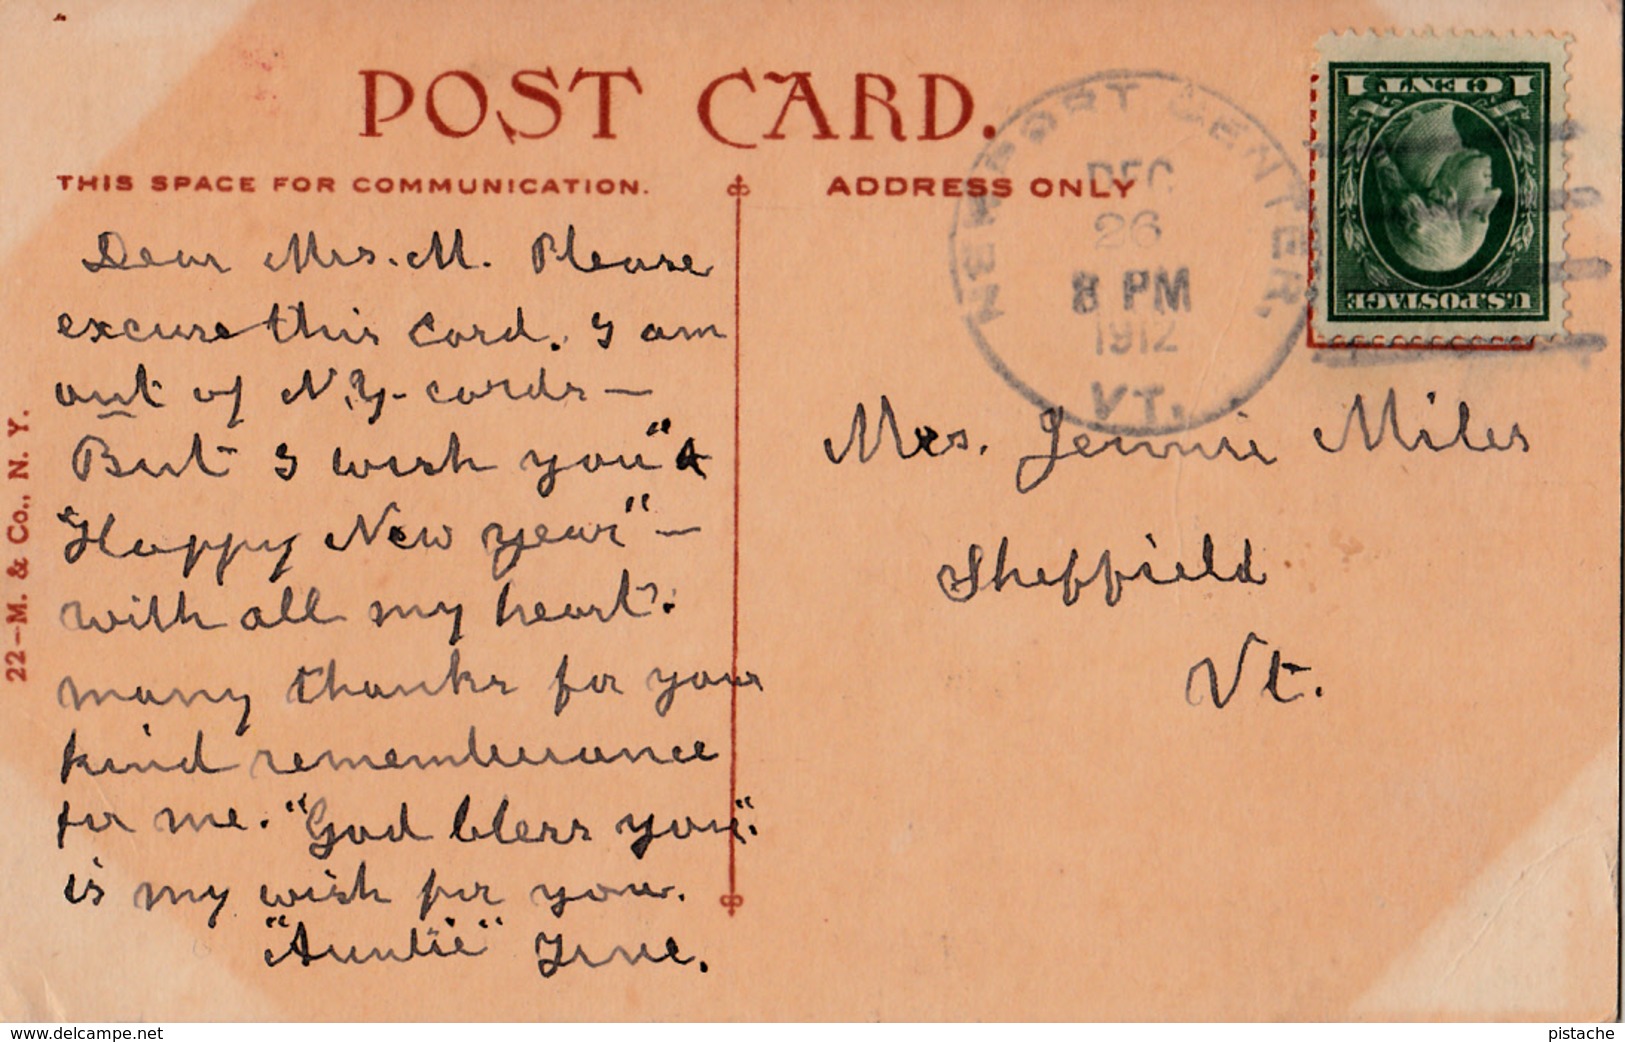 POST CARD.
THIS SPACE FOR COMMUNICATION.
ADDRESS ONLY
Dear Mrs. M. Please
excuse this card. I am
out of N.Y. cards—
But I wish you "A
"Happy New year"—
with all my heart.
many thanks for your
kind rememberance
for me. "God bless you".
is my wish for you.
"Auntie"
22–M. & Co., N. Y.
NEWPORT CENTER,
DEC
26
8 PM
1912
VT.
1 CENT 1
U.S. POSTAGE
Mrs. Jennie Miles
Sheffield
Vt.
www.delcampe.net
pistache